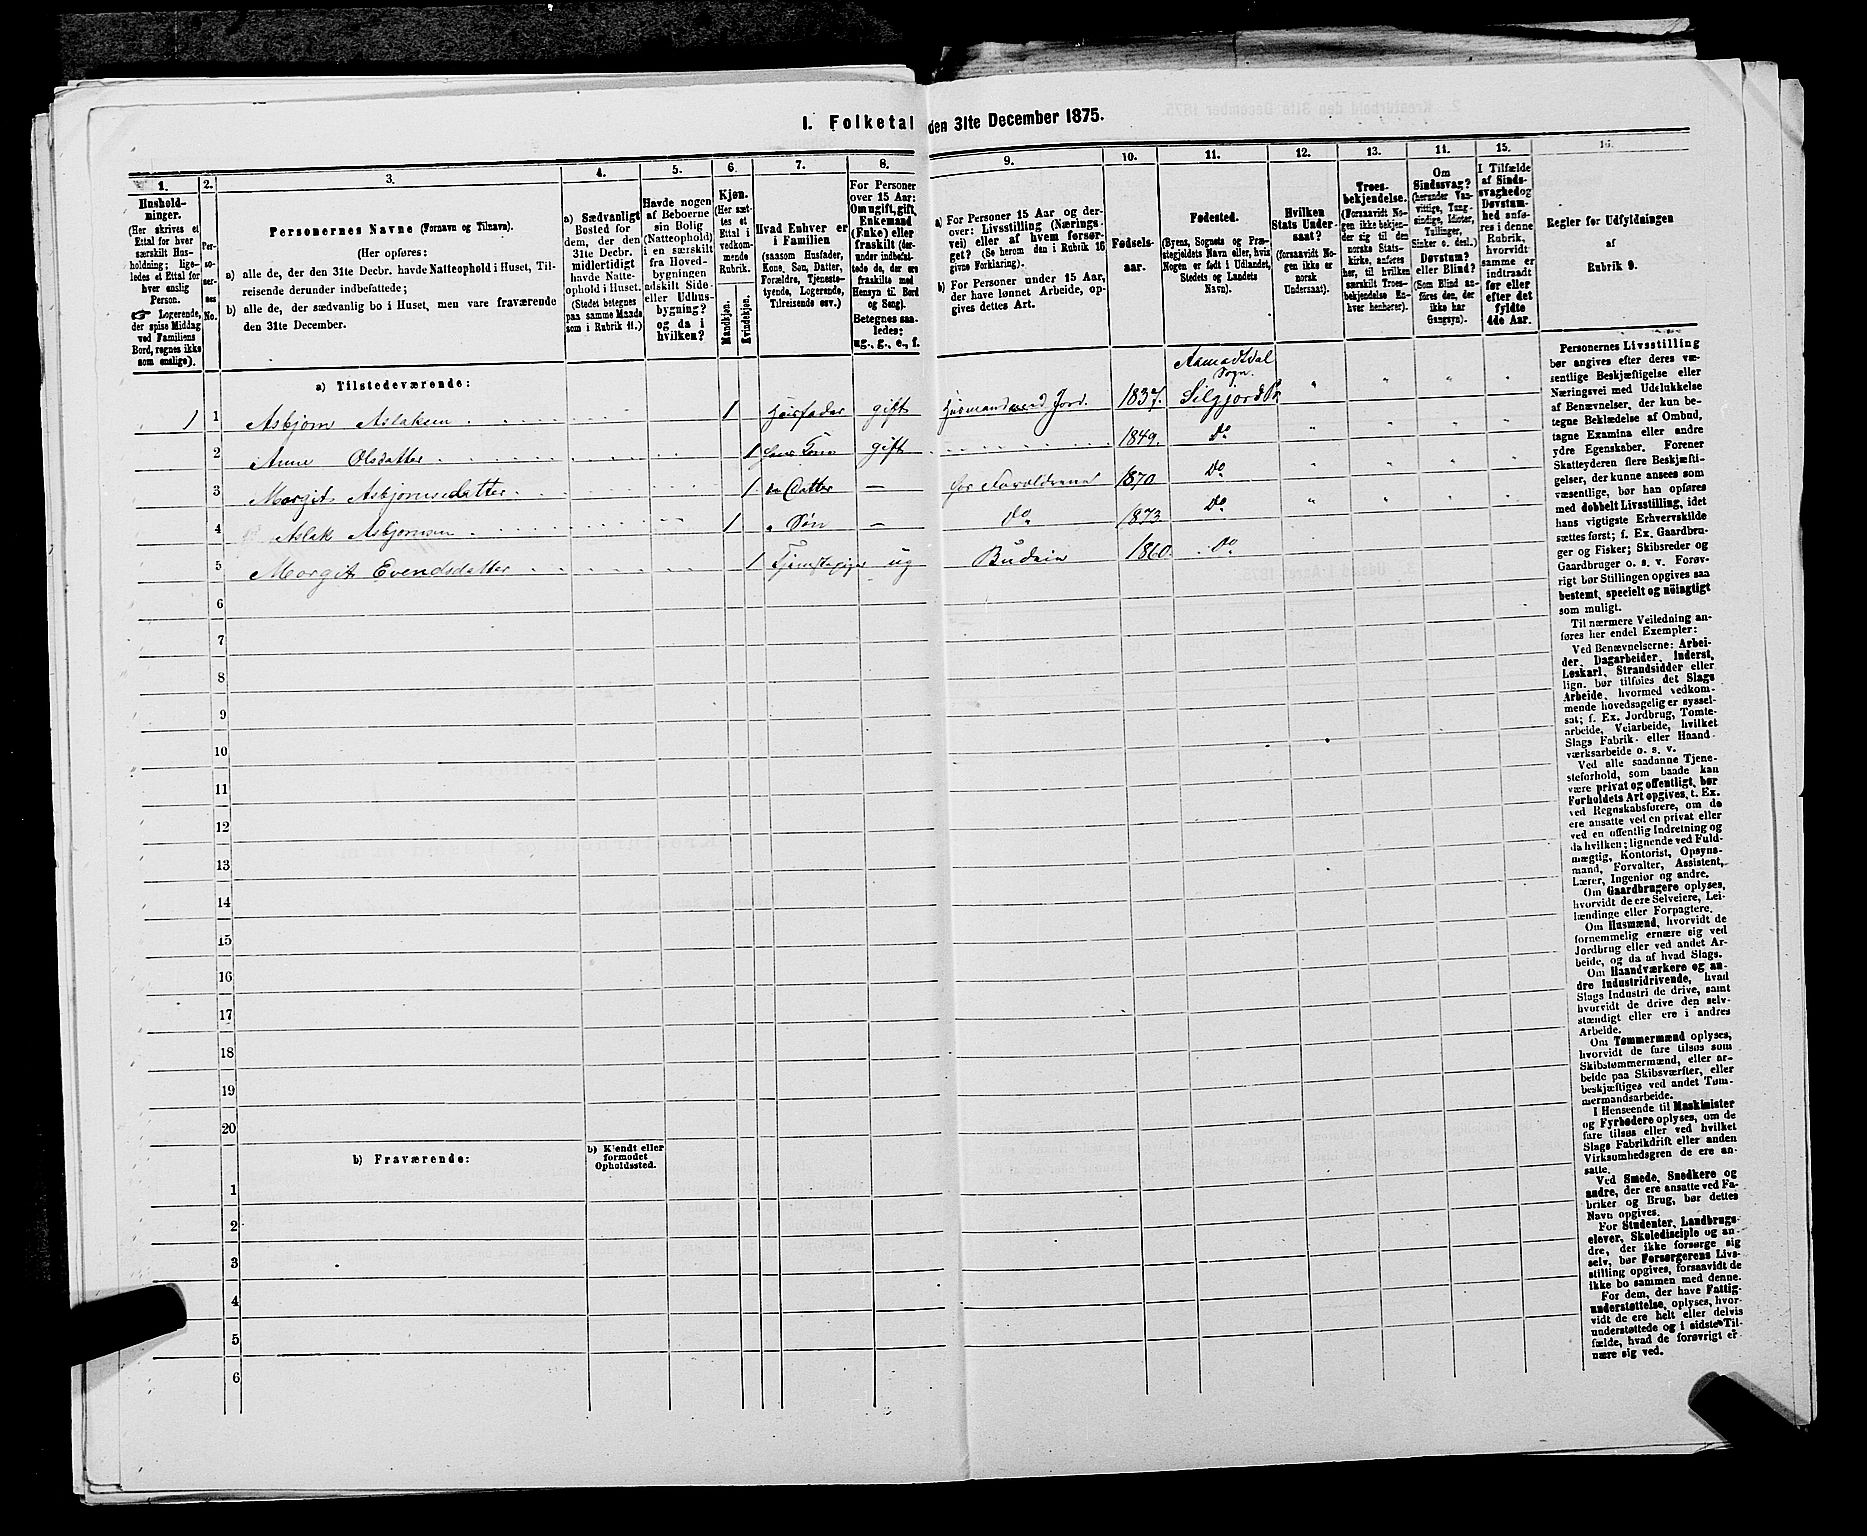 I. Folketal den 31te December 1875.
1.
Husholdninger.
(Her skrives et
Ettal for hver
særskilt Husholdning; ligeledes et Ettal for
hver enslig
Person.
☞ Logerende,
der spise Middag
ved Familiens
Bord, regnes ikke
som enslige).
2.
Personernes
No.
3.
Personernes Navne (Fornavn og Tilnavn).
(Her opføres:
a) alle de, der den 31te Decbr. havde Natteophold i Huset, Tilreisende derunder indbefattede;
b) alle de, der sædvanlig bo i Huset, men vare fraværende
den 31te December.
4.
a) Sædvanligt
Bosted for
dem, der den
31te Decbr.
midlertidigt
havde Natteophold i Huset.
(Stedet betegnes
paa samme Maade
som i Rubrik 11.)
5.
Havde nogen
af Beboerne
sin Bolig
(Natteophold)
i en særskilt
fra Hovedbygningen
adskilt Side-
eller Udhusbygning?
og da i
hvilken?
6.
Kjøn.
(Her sættes et
Ettal i
vedkommende
Rubrik.
Mandkjøn.
Kvindekjøn.
7.
Hvad Enhver er
i Familien
(saasom Husfader,
Kone, Søn, Datter,
Forældre, Tjenestetyende, Logerende,
Tilreisende osv.)
8.
For Personer
over 15 Aar:
Om ugift, gift,
Enkemand
(Enke) eller
fraskilt (derunder indbefattede de, der ere
fraskilte med
Hensyn til Bord
og Seng).
Betegnes saaledes:
ug., g., e., f.
9.
a) For Personer 15 Aar og derover: Livsstilling (Næringsvei) eller af hvem forsørget? (Se herom den i Rubrik 16
givne Forklaring).
b) For Personer under 15 Aar,
der have lønnet Arbeide, opgives dettes Art.
10.
Fødselsaar.
11.
Fødested.
(Byens, Sognets og Præstegjeldets Navn eller, hvis
Nogen er født i Udlandet,
Stedets og Landets
Navn).
12.
Hvilken
Stats Undersaat?
(forsaavidt Nogen ikke er
norsk
Undersaat).
13.
Troesbekjendelse.
(Forsaavidt Nogen ikke bekjender sig til den
norske Statskirke, anføres
her, til hvilken
særskilt Troesbekjendelse Enhver henhører).
14.
Om
Sindssvag?
(herunder Vanvittige, Tungsindige, Idioter,
Tullinger,
Sinker o. desl.)
Døvstum?
eller Blind?
(Som Blind anføres den, der
ikke har
Gangsyn).
15.
I Tilfælde
af Sindssvaghed og
Døvstumhed anføres i denne
Rubrik,
hvorvidt
samme er
indtraadt
før eller
efter det
fyldte
4de Aar.
16.
Regler for Udfyldningen
af
Rubrik 9.
a) Tilstedeværende:
Aamodtdal
Sogn.
1 1 Asbjørn Aslaksen 1 Husfader gift Husmand med Jord. 1837. Silgjord Pr.
2 Anne Olsdatter 1 hans Kone gift 1849. Do
3 Margit Asbjørnsdatter 1 Datter — for Forældrene 1870 Do
4 Aslak Asbjørnsen 1 " Søn — Do 1873 Do
5 Margit Evendsdatter 1 Tjenstepige ug Budeie 1860. Do
6
7
8
9
10
11
12
13
14
15
16
17
18
19
20
b) Fraværende:
b) Kjendt eller
formodet
Opholdssted.
1
2
3
4
5
6
Personernes Livsstilling
bør angives efter deres væsentlige Beskjæftigelse eller
Næringsvei med Udelukkelse
af Benævnelser, der kun betegne Beklædelse af Ombud,
tagne Examina eller andre
ydre Egenskaber. Forener
Skatteyderen flere Beskjæftigelser, der kunne ansees som
væsentlige, bør han opføres
med dobbelt Livsstilling, idet
hans vigtigste Erhvervskilde
sættes først; f. Ex. Gaardbruger og Fisker; Skibsreder og
Gaardbruger o. s. v. Forøvrigt bør Stillingen opgives saa
bestemt, specielt og nøiagtigt
som muligt.
Til nærmere Veiledning anføres her endel Exempler:
Ved Benævnelserne: Arbeider, Dagarbeider, Inderst,
Løskarl, Strandsidder eller
lign. bør tilføies det Slags
Arbeide, hvormed vedkommende hovedsagelig er sysselsat; f. Ex. Jordbrug, Tomtearbeide, Veiarbeide, hvilket
Slags Fabrik- eller Haandværksarbeide o. s. v.
Ved alle saadanne Tjenesteforhold, som baade kan
være privat og offentligt, bør
Forholdets Art opgives, t. Ex.
ved Regnskabsførere, om de
ere ansatte ved en privat eller
ved en offentlig Indretning og
da hvilken; lignende ved Fuldmægtig, Kontorist, Opsynsmand, Forvalter, Assistent,
Lærer, Ingeniør og andre.
Om Gaardbrugere oplyses,
hvorvidt de ere Selveiere, Leilændinge eller Forpagtere.
Om Husmænd, hvorvidt de
fornemmelig ernære sig ved
Jordbrug eller ved andet Arbeide, og da af hvad Slags.
Om Haandværkere og andre Industridrivende, hvad
Slags Industri de drive, samt
hvorvidt de drive den selvstændigt eller ere i andres
Arbeide.
Om Tømmermænd oplyses,
hvorvidt de fare tilsøs som
Skibstømmermænd, eller arbeide paa Skibsværfter, eller
beskjæftiges ved andet Tømmermandsarbeide.
I Henseende til Maskinister
og Fyrbødere oplyses, om de
fare tilsøs eller ved hvilket
Slags Fabrikdrift eller anden
Virksomhedsgren de ere ansatte.
Ved Smede, Snedkere og
andre, der ere ansatte ved Fabriker og Brug, bør dettes
Navn opgives.
For Studenter, Landbrugselever, Skoledisciple og andre, der ikke forsørge sig
selv, bør Forsørgerens Livsstilling opgives, forsaavidt de
ikke bo sammen med denne.
For dem, der have Fattigunderstøttelse, oplyses, hvorvidt de ere helt eller delvis
understøttede og i sidste Tilfælde, hvad de forøvrigt ernære sig ved.